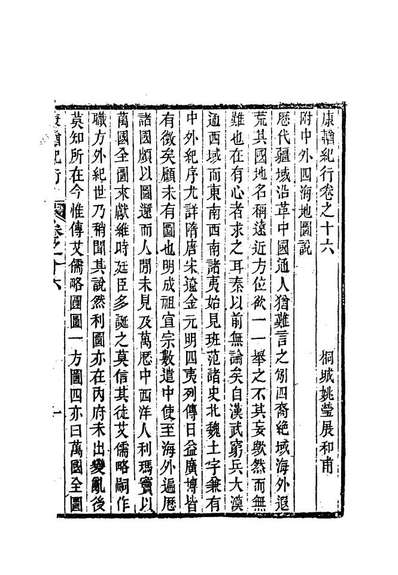 康輶紀行卷之十六
桐城姚瑩展和甫
附中外四海地圖說
歷代疆域沿革中國通人猶難言之例四裔絶域海外遐
荒其國地名稱遠近方位欲一一舉之不其妄歟然而無
難也在有心者求之耳秦以前無論矣自漢武窮兵大漠
通西域而東南西南諸夷始見班范諸史北魏土宇兼有
中外紀序尤詳隋唐宋遼金元明四夷列傳日益廣博皆
有徵矣顧未有圖也明成祖宣宗數遣中使至海外遍歷
諸國頗以圖還而人閒未見及萬歷中西洋人利瑪竇以
萬國全圖來獻維時廷臣多誕之莫信其徒艾儒略嗣作
職方外紀世乃稍聞其說然利圖亦在內府未出變亂後
莫知所在今惟傳艾儒略圓圖一方圖四亦曰萬國全圖
康輶紀行
卷之十六
一